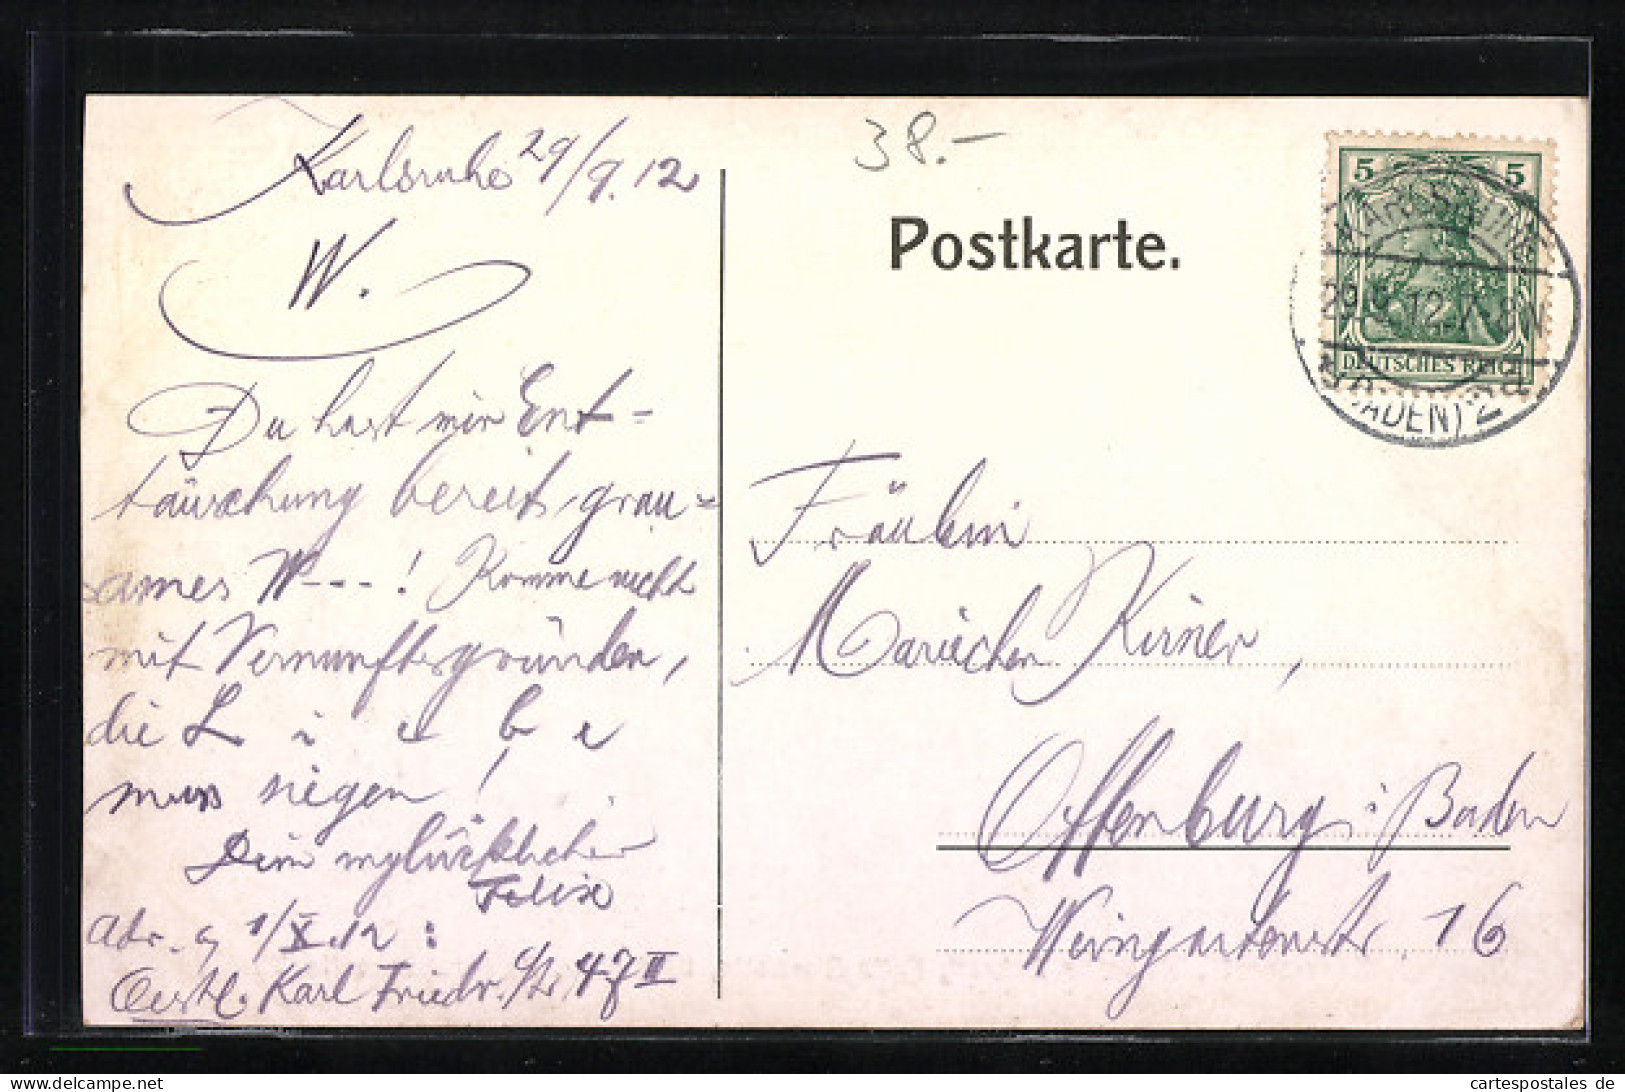 Karlsruhe 29/9.12
W.
Du hast mir Ent-
täuschung bereit, grau-
sames W---! Komme nicht
mit Vernunftsgründen,
die L i e b e
muss siegen!
Dein unglücklicher
Felix
Adr. 1/X.12:
Oestl. Karl Friedr. Str. 47 II
38.-
Postkarte.
5 5
DEUTSCHES REICH
KARLSRUHE
29.9.12.7-8N
(BADEN) 2
Fräulein
Mariechen Kirner,
Offenburg i Baden
Weingartenstr. 16
cartespostales de